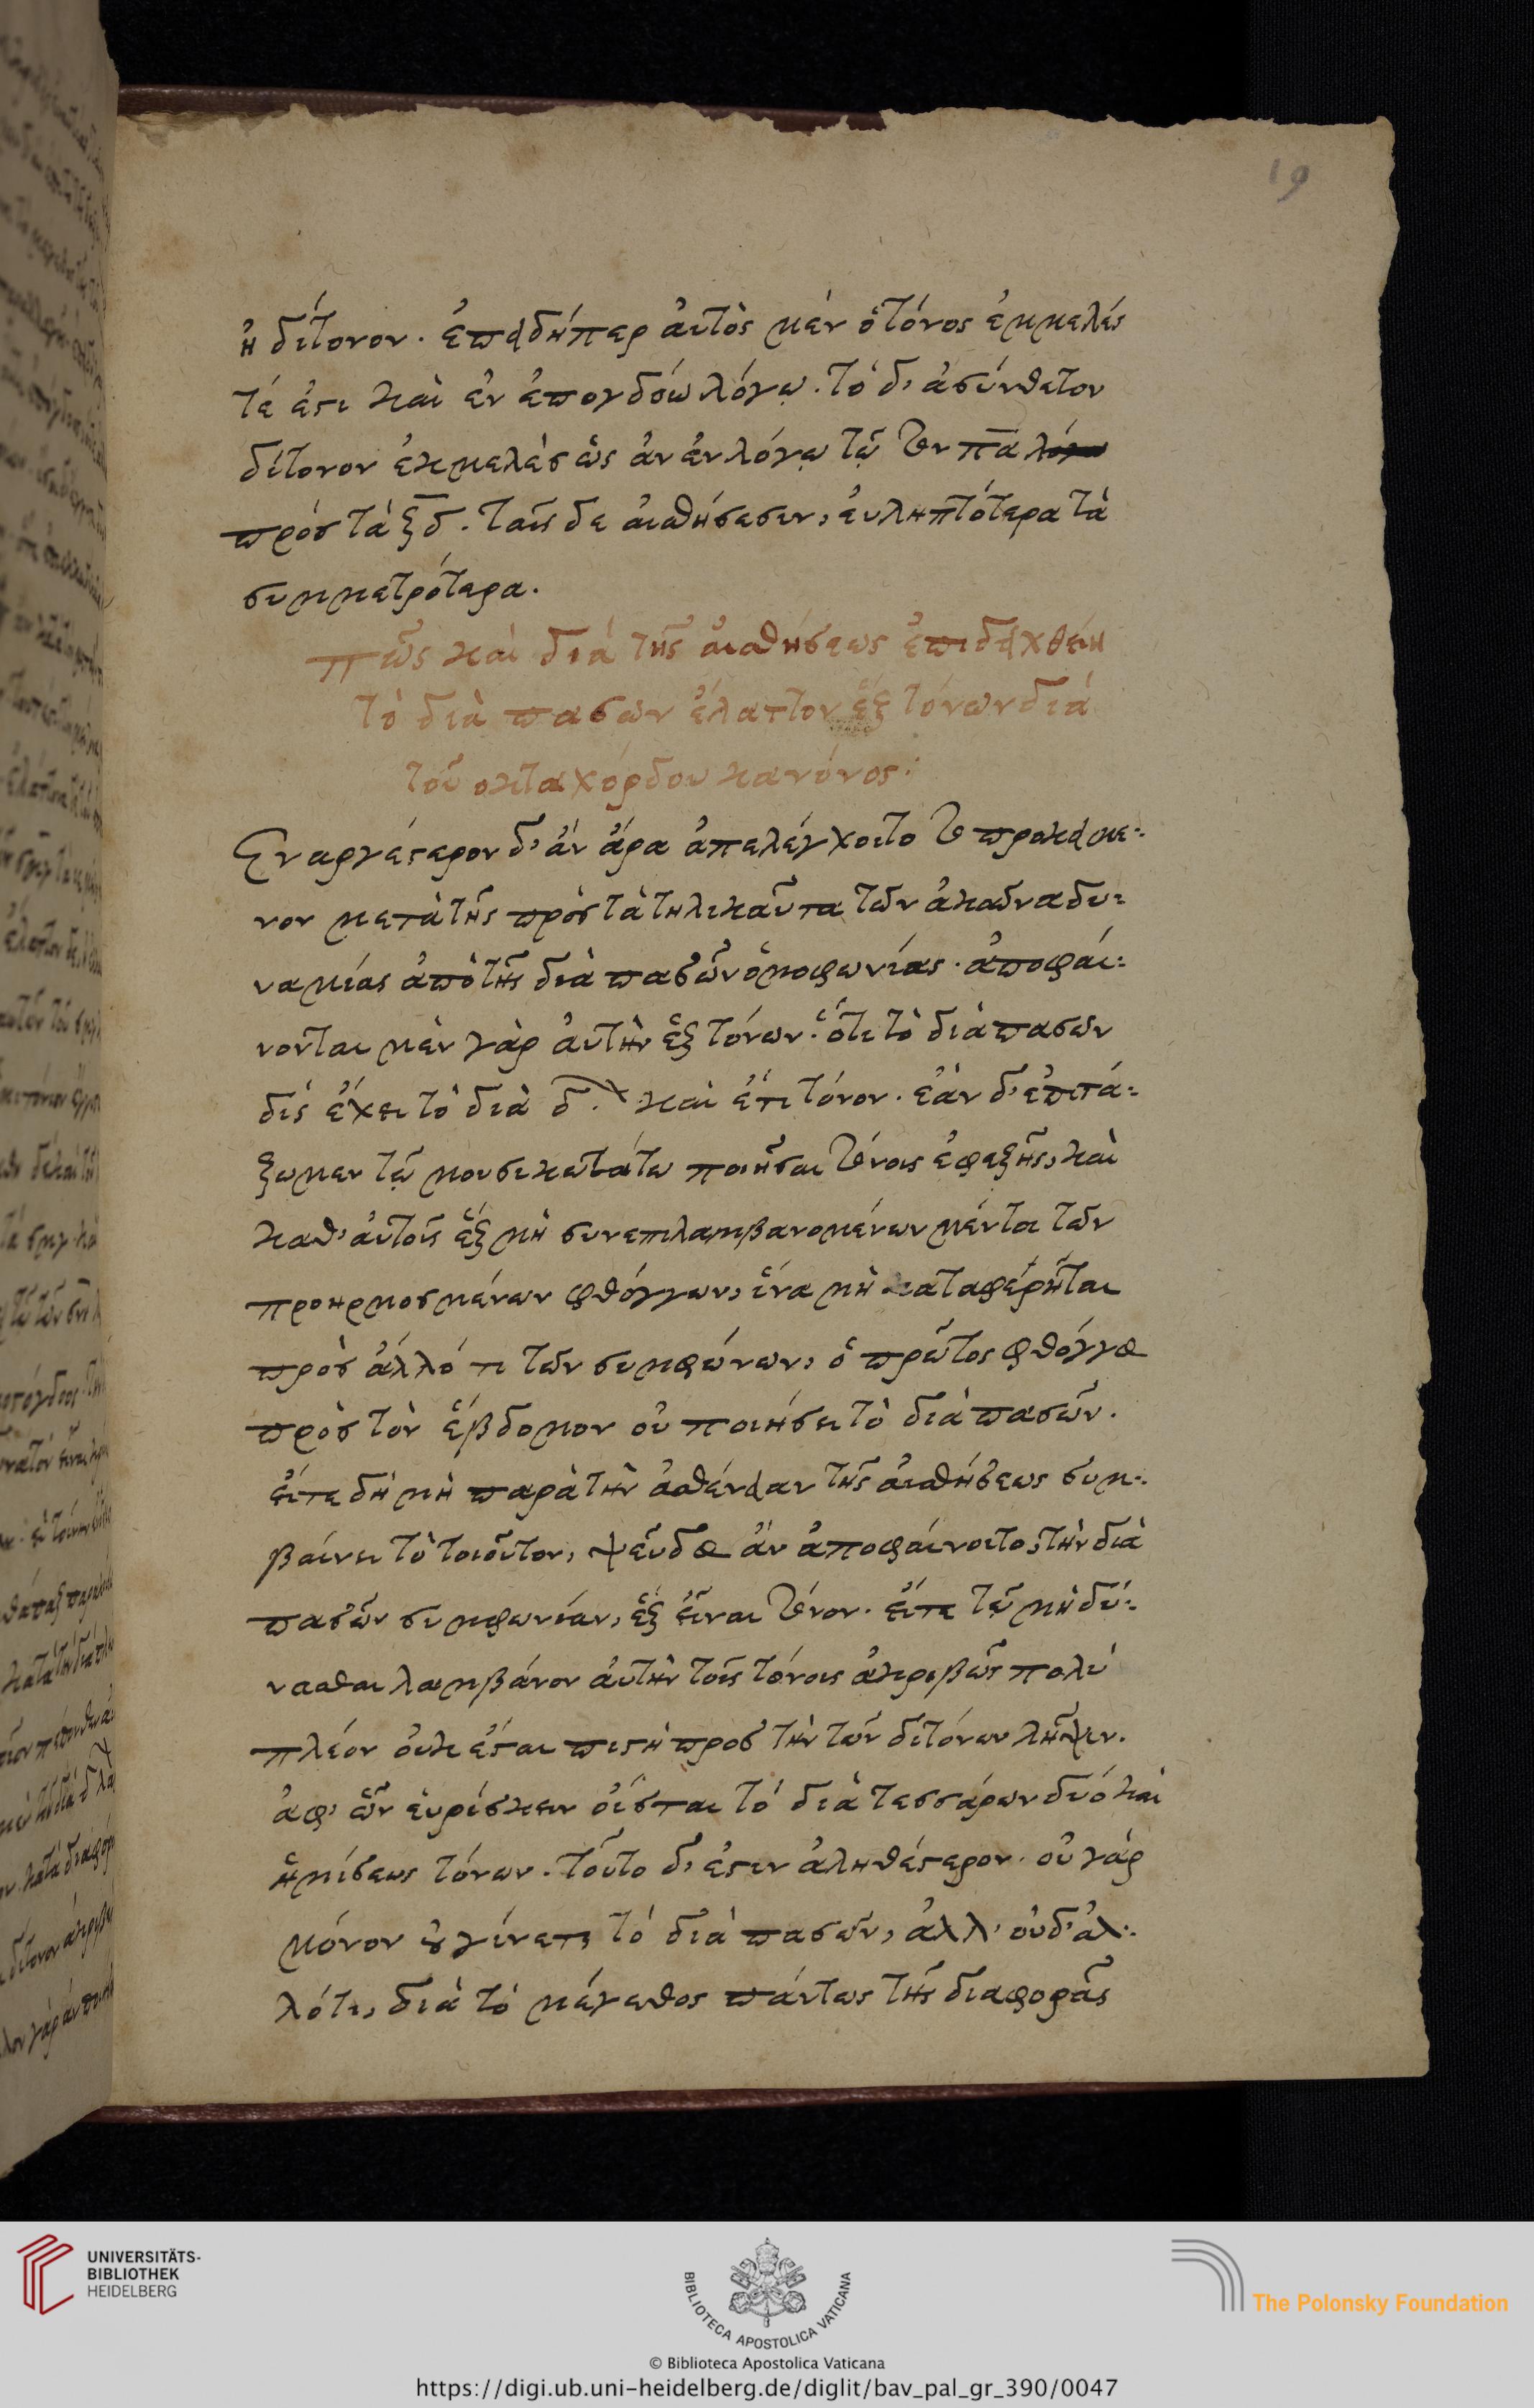 19
ἢ δίτονον. ἐπειδήπερ αὐτὸς μὲν ὁ τόνος ἐμμελής
τέ ἐστι καὶ ἐν ἐπογδόω λόγῳ. τὸ δ' ἀσύνθετον
δίτονον ἐκμελὲς ὡς ἂν ἐν λόγῳ τῷ των πα λόγω
πρὸς τὰ ξδ. ταῖς δε αἰσθήσεσιν, εὐληπτότερα τὰ
συμμετρότερα.
πῶς καὶ διὰ τῆς αἰσθήσεως ἐπιδειχθείη
τὸ διὰ πασων ἔλαττον ἓξ τόνων διὰ
τοῦ οκταχόρδου κανόνος:
Εναργέστερον δ' ἂν ἄρα ἀπελέγχοιτο το προκείμε-
νον μετὰ τῆς πρὸς τὰ τηλικαῦτα τῶν ἀκοῶν αδυ-
ναμίας ἀπὸ τῆς διὰ πασῶν ὁμοφωνίας. ἀποφαί-
νονται μὲν γὰρ αὐτὴν ἓξ τόνων. ὅτι τὸ διὰ πασῶν
δὶς ἔχει τὸ διὰ δ. καὶ ἔτι τόνον. ἐὰν δ' ἐπιτά-
ξωμεν τῷ μουσικωτάτω ποιῆσαι τόνους ἐφεξῆς, καὶ
καθ' αὐτοὺς ἓξ μὴ συνεπιλαμβανομένων μέντοι τῶν
προηρμοσμένων φθόγγων, ἵνα μὴ καταφέρηται
πρὸς ἄλλό τι τῶν συμφώνων, ὁ πρῶτος φθόγγος
πρὸς τὸν ἕβδομον οὐ ποιήσει τὸ διὰ πασῶν.
εἴτε δὴ μὴ παρὰ τὴν ἀσθένειαν τῆς αἰσθήσεως συμ-
βαίνει τὸ τοιοῦτον, ψεῦδος ἂν ἀποφαίνοιτο, τὴν διὰ
πασῶν συμφωνίαν, ἓξ εἶναι τόνον. εἴτε τῷ μὴ δύ-
νασθαι λαμβάνον αὐτὴν τοὺς τόνους ἀκριβῶς πολὺ
πλέον οὐκ ἔσται πιστὴ πρὸς τὴν τῶν διτόνων λῆψιν.
ἀφ' ὧν εὑρίσκειν οἴεται τὸ διὰ τεσσάρων δυό καὶ
ἡμίσεως τόνων. τοῦτο δ' ἐστιν ἀληθέστερον. οὐ γὰρ
μόνον οὐ γίνεται τὸ διὰ πασῶν, ἀλλ' οὐδ' ἀλ-
λότι, διὰ τὸ μέγεθος πάντως τῆς διαφορᾶς
UNIVERSITÄTS-
BIBLIOTHEK
HEIDELBERG
BIBLIOTECA APOSTOLICA VATICANA
The Polonsky Foundation
© Biblioteca Apostolica Vaticana
https://digi.ub.uni-heidelberg.de/diglit/bav_pal_gr_390/0047